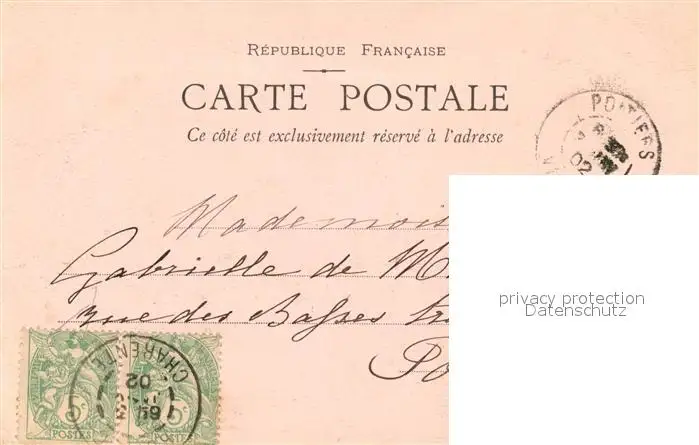 République Française
CARTE POSTALE
Ce côté est exclusivement réservé à l'adresse
POITIERS
02
Mademois
Gabrielle de M
rue des Basses tr
Po
privacy protection
Datenschutz
CHARENTE
02
5c 5c
POSTES POSTES